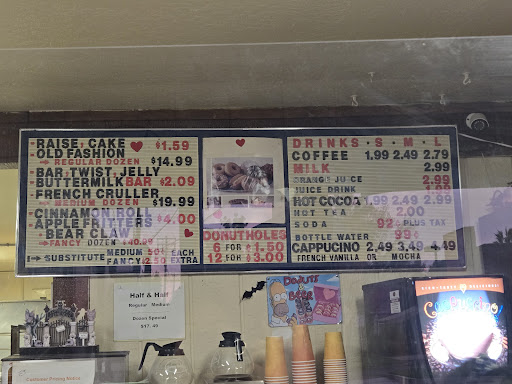 RAISE, CAKE $1.59
OLD FASHION
→ REGULAR DOZEN $14.99
BAR, TWIST, JELLY
BUTTERMILK BAR $2.09
FRENCH CRULLER
→ MEDIUM DOZEN $19.99
CINNAMON ROLL
APPLE FRITTERS $4.00
BEAR CLAW
→ FANCY DOZEN $40.99
→ SUBSTITUTE MEDIUM 50¢ EACH
FANCY $2.50 EXTRA
DONUTHOLES
6 FOR $1.50
12 FOR $3.00
DRINKS · S · M · L
COFFEE 1.99 2.49 2.79
MILK 2.99
ORANGE JUICE 2.99
JUICE DRINK
HOT COCOA 1.99 2.49 2.99
HOT TEA 2.00
SODA 92¢ PLUS TAX
BOTTLE WATER 99¢
CAPPUCINO 2.49 3.49 4.49
FRENCH VANILLA OR MOCHA
Half & Half
Regular Medium
Dozen Special
$17.49
DONUTS
BEER
Customer Pricing Notice